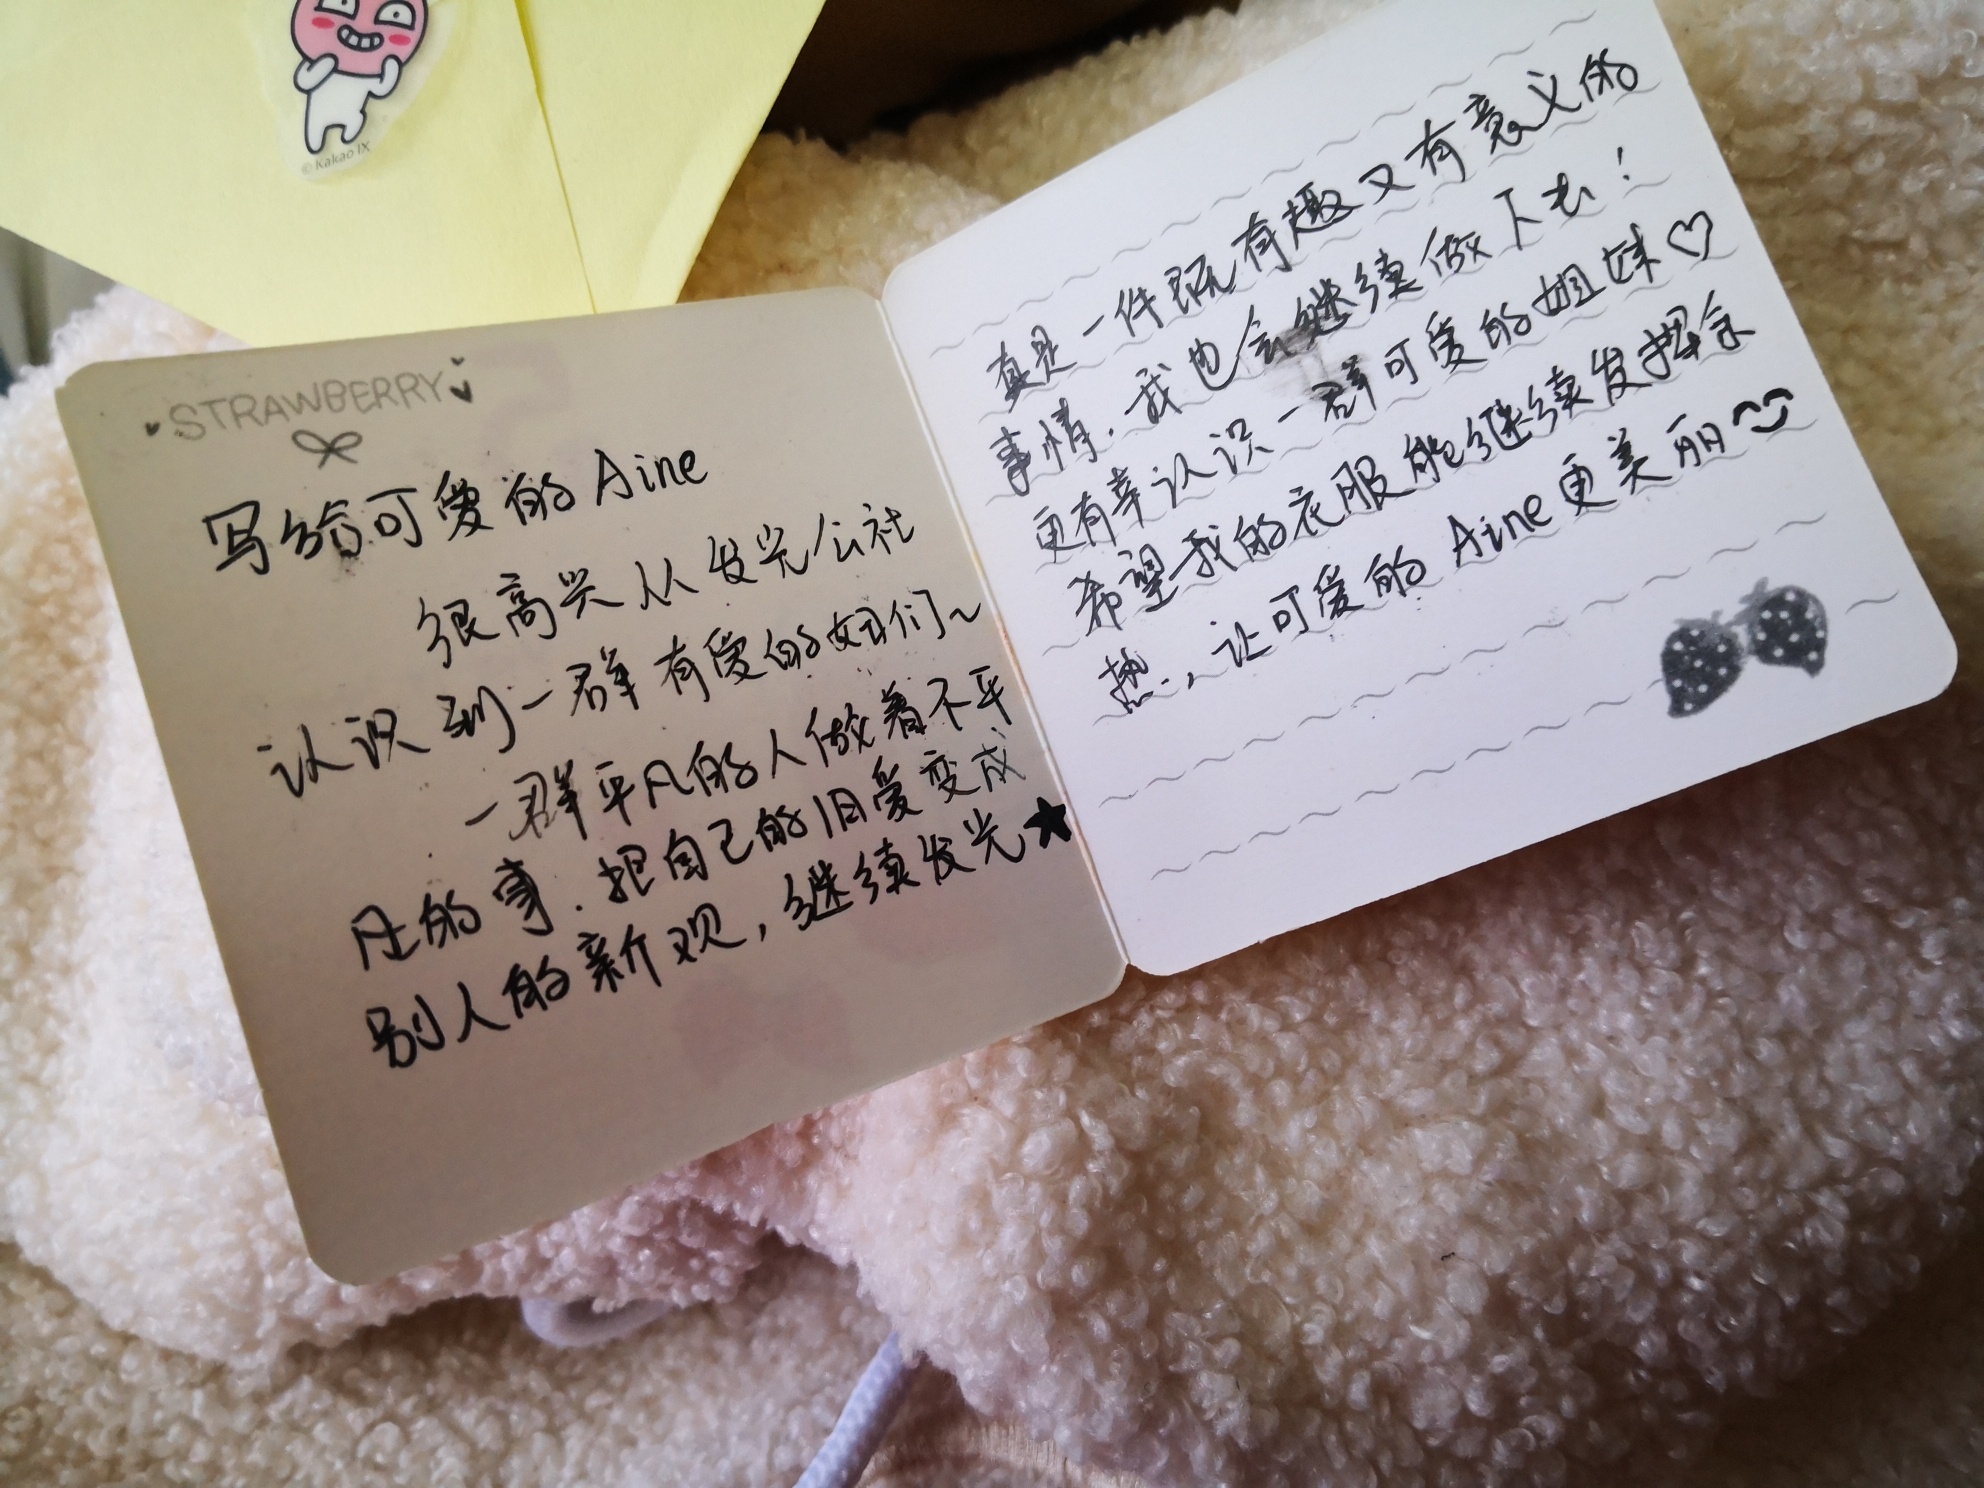 © Kakao IX
STRAWBERRY
写给可爱的Aine
很高兴从发光公社
认识到一群有爱的姐们~
一群平凡的人做着不平
凡的事.把自己的旧爱变成
别人的新观,继续发光★
真是一件既有趣又有意义的
事情.我也会继续做下去!
更有幸认识一群可爱的姐妹♡
希望我的衣服能继续发挥余
热,让可爱的Aine更美丽